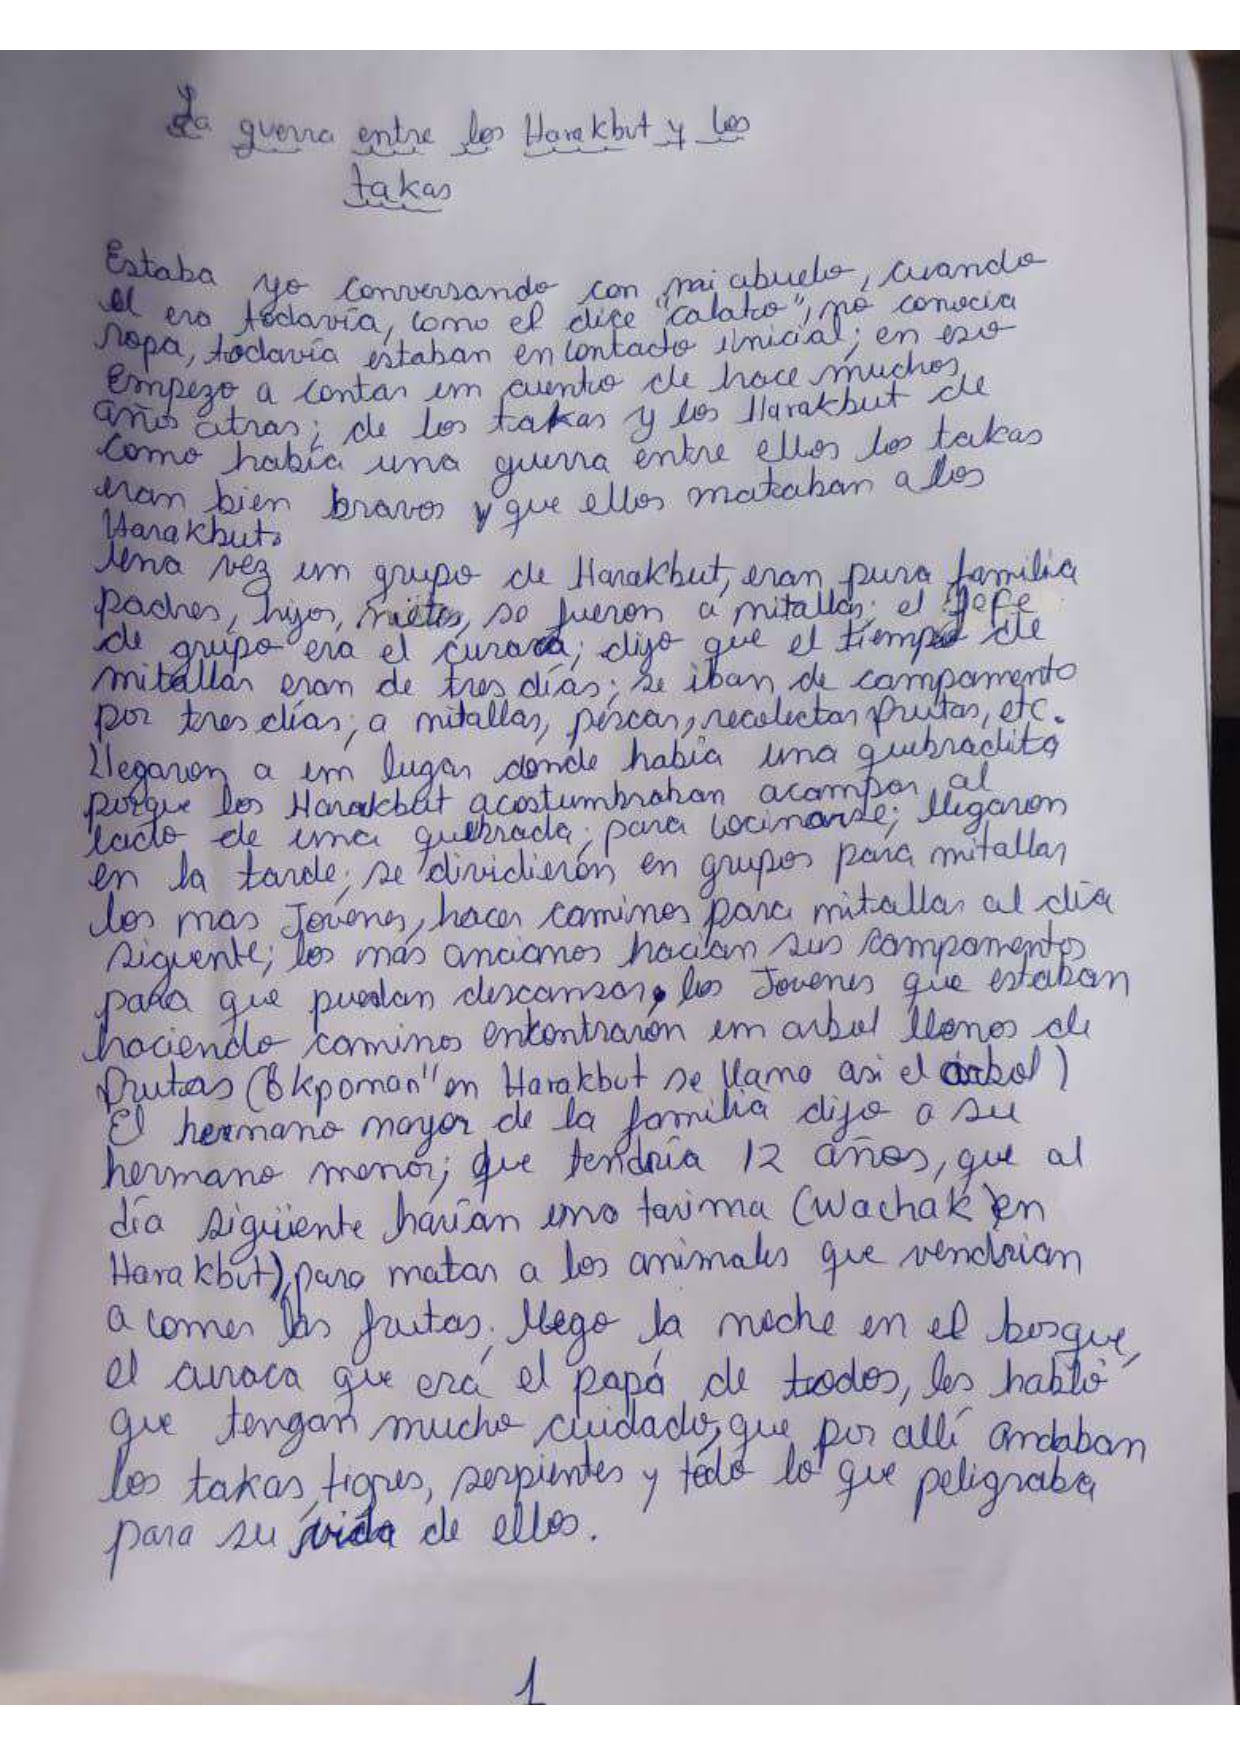 La guerra entre los Harakbut y los
takas
Estaba yo conversando con mi abuelo, cuando
el era todavía, como el dice "calato", no conocia
ropa, todavía estaban en contacto inicial; en eso
Empezo a contar un cuento de hace muchos
años atras; de los takas y los Harakbut de
como había una guerra entre ellos los takas
eran bien bravos y que ellos mataban a los
Harakbut.
Una vez un grupo de Harakbut, eran pura familia
padres, hijos, nietos, se fueron a mitallar; el Jefe
de grupo era el curaca; dijo que el tiempo de
mitallar eran de tres días; se iban de campamento
por tres días; a mitallar, pescar, recolectar frutas, etc.
Llegaron a un lugar donde había una quebradita
porque los Harakbut acostumbraban acampar al
lado de una quebrada; para cocinarse; llegaron
en la tarde; se dividierón en grupos para mitallar
los mas Jovenes, hacer caminos para mitallar al día
siguente; los más ancianos hacían sus campamentos
para que puedan descansar, los Jovenes que estaban
haciendo caminos enkontrarón un arbol llenos de
frutas ("Okpoman" en Harakbut se llama asi el árbol)
El hermano mayor de la familia dijo a su
hermano menor; que tendría 12 años, que al
día sigüiente harían una tarima (Wachak en
Harakbut), para matar a los animales que vendrian
a comer las frutas. Llego la noche en el bosque,
el curaca que erá el papá de todos, les habló
que tengan mucho cuidado, que por allí andaban
los takas, tigres, serpientes y todo lo que peligraba
para su vida de ellos.
1